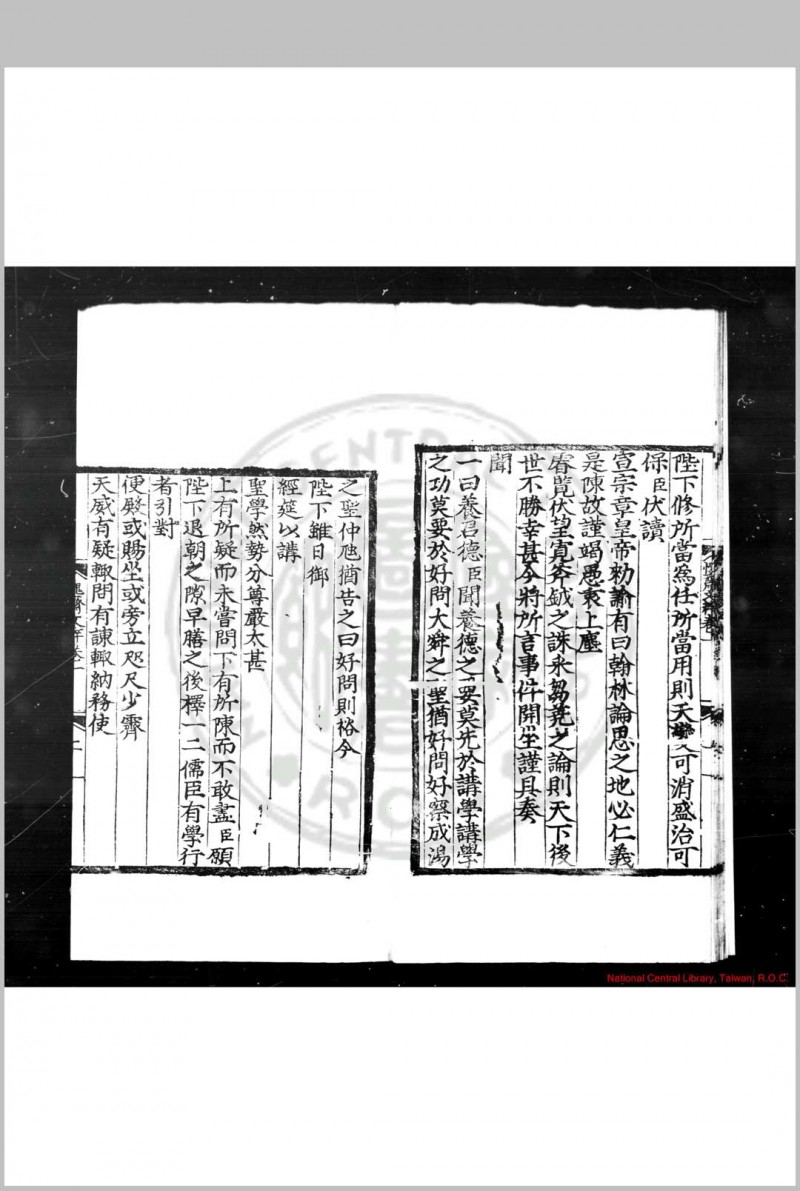 陛下修所當爲任所當用則天變可消盛治可
保臣伏讀
宣宗章皇帝勑諭有曰翰林論思之地必仁義
是陳故謹竭愚衷上塵
睿覽伏望寬斧鉞之誅采芻蕘之論則天下後
世不勝幸甚今將所言事件開坐謹具奏
聞
一曰養君德臣聞養德之要莫先於講學講學
之功莫要於好問大舜之聖猶好問好察成湯
之聖仲虺猶告之曰好問則裕今
陛下雖日御
經筵以講
聖學然勢分尊嚴太甚
上有所疑而未嘗問下有所陳而不敢盡臣願
陛下退朝之隙早膳之後擇一二儒臣有學行
者引對
便殿或賜坐或旁立咫尺少霽
天威有疑輒問有諫輒納務使
National Central Library, Taiwan, R.O.C.